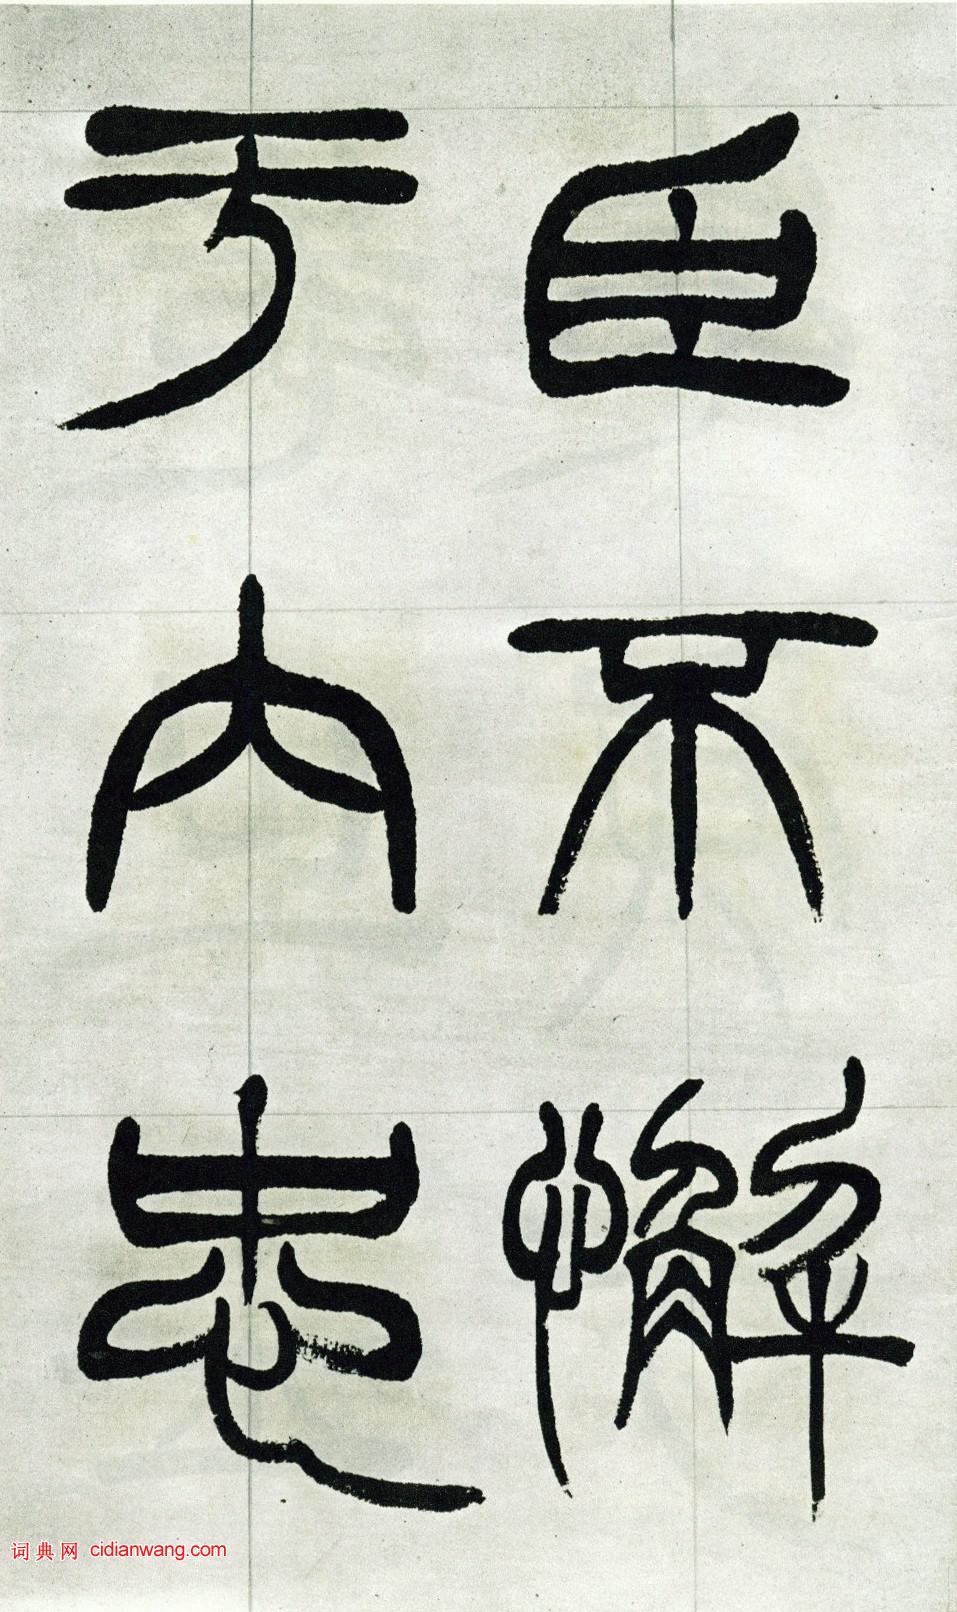 臣不懈
于内忠
词典网 cidianwang.com